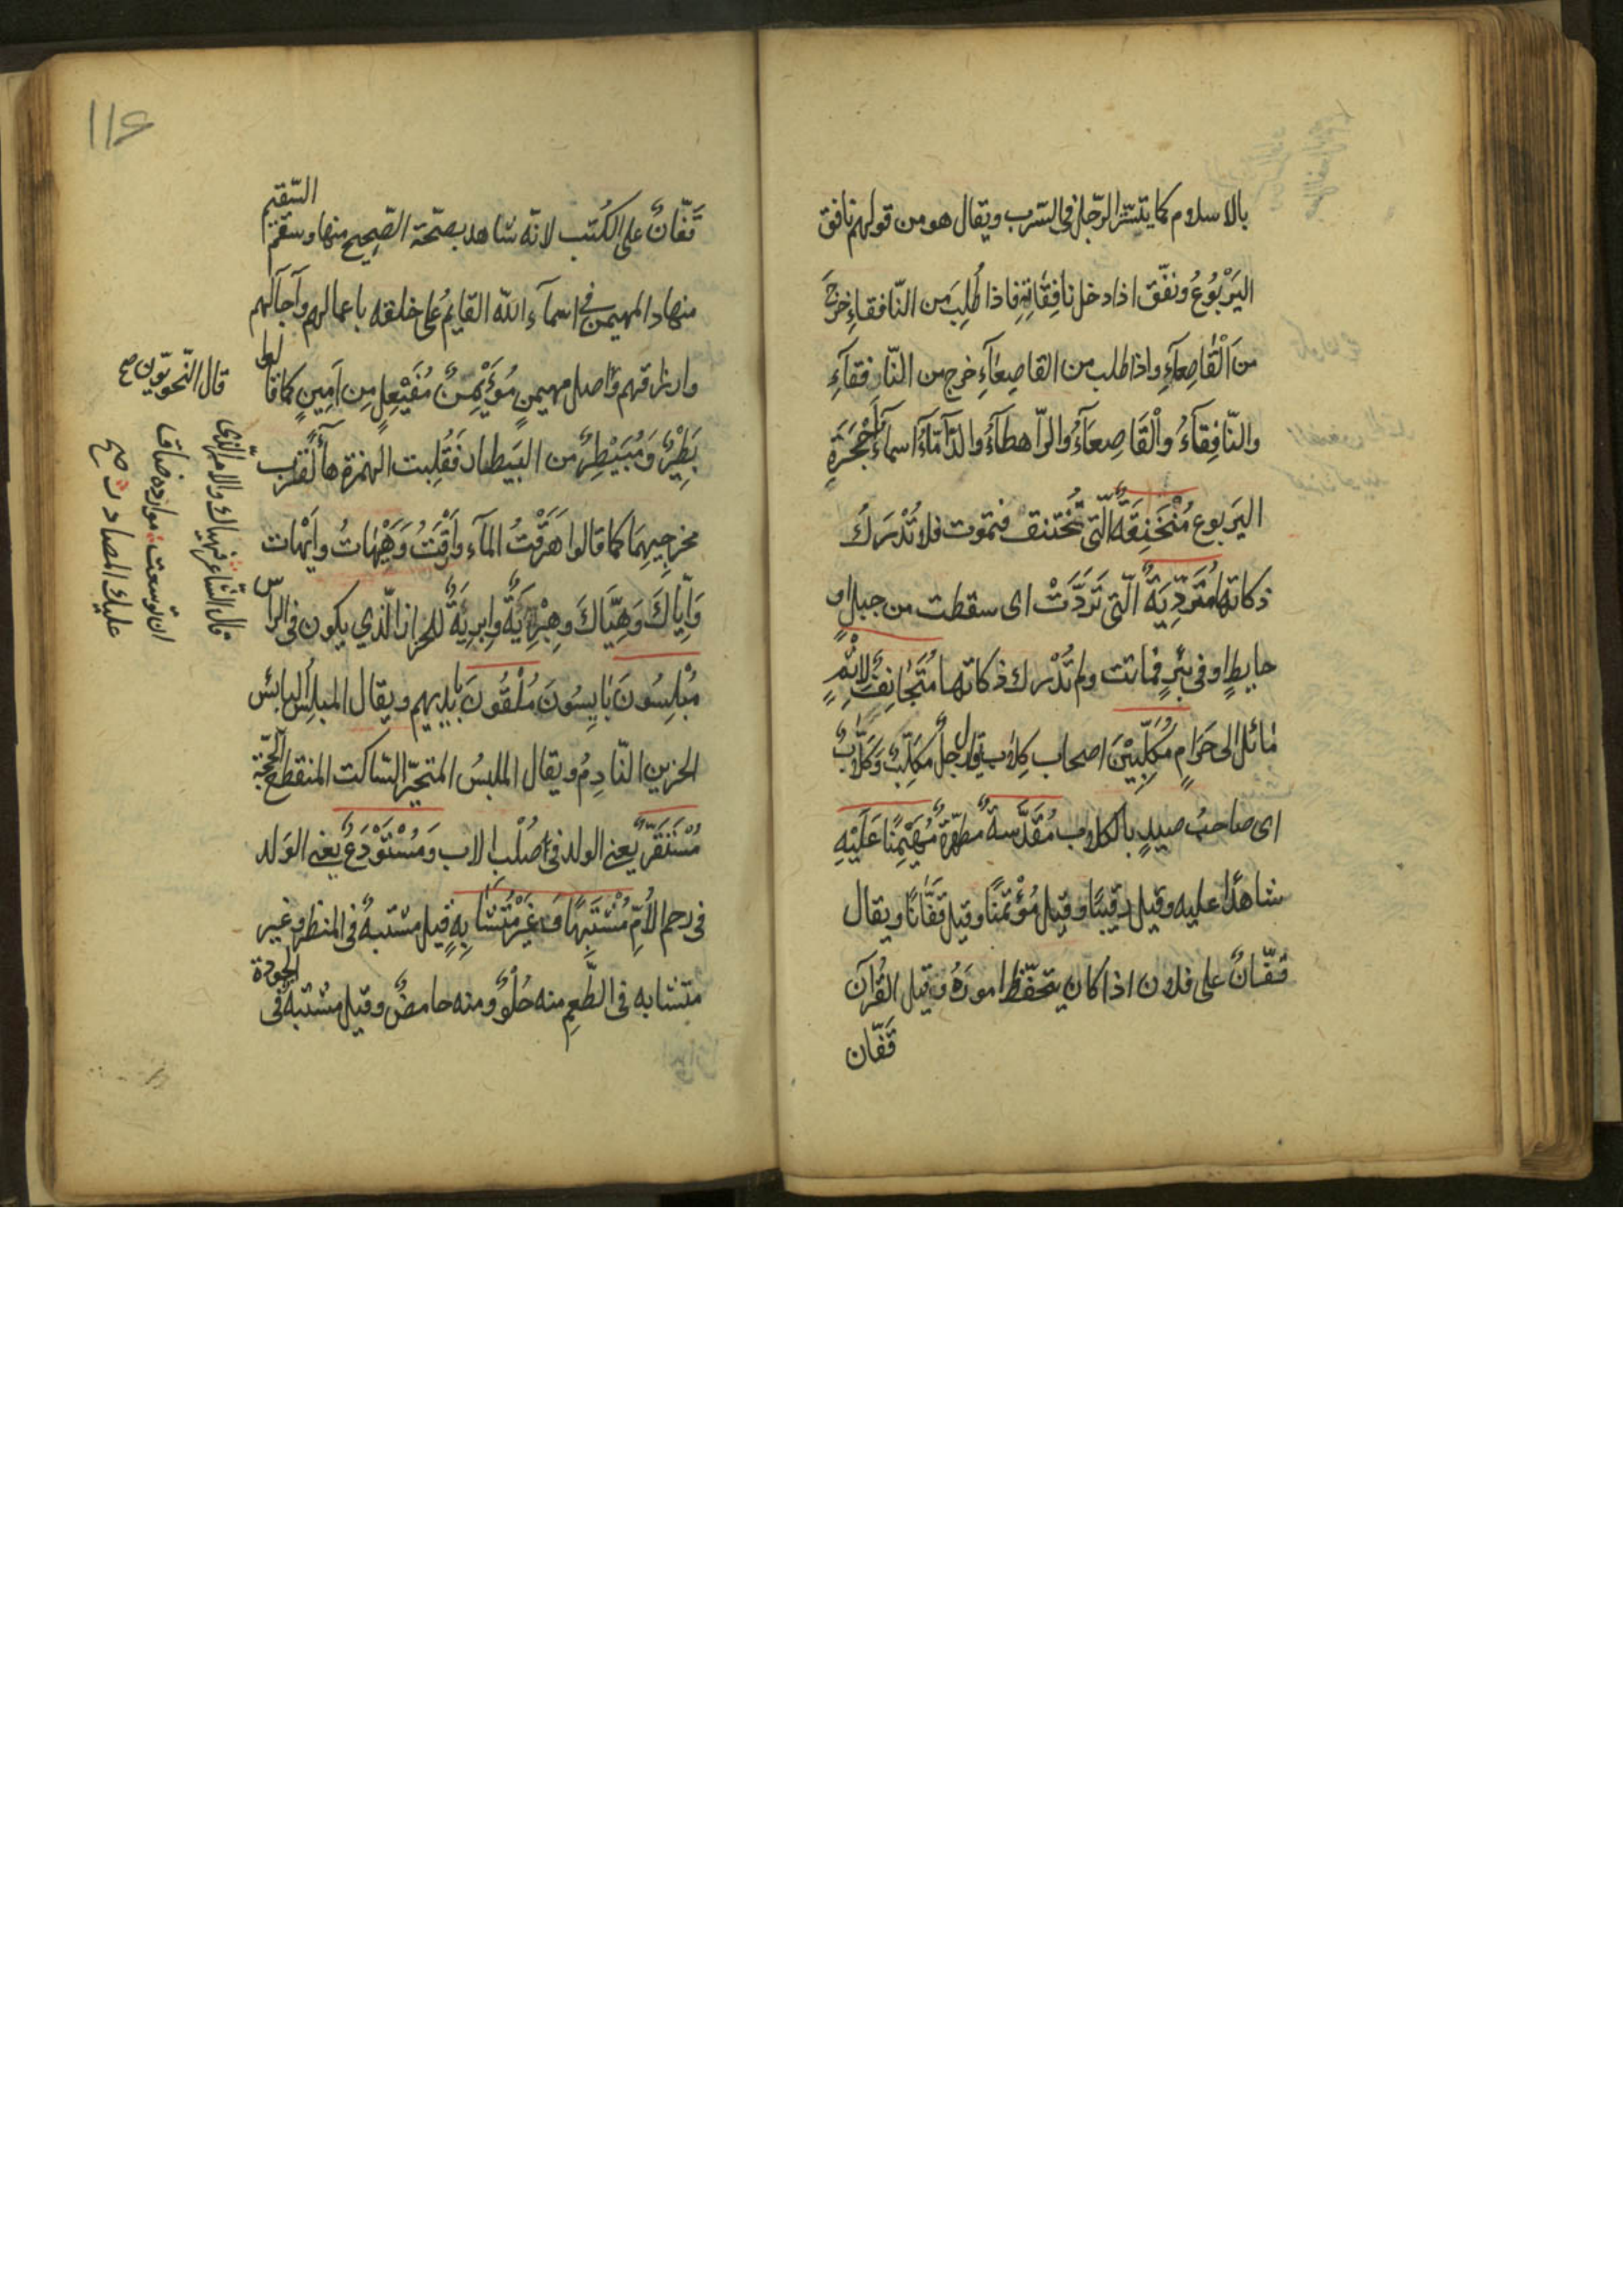 بالاسلام كما يتستّر الرّجل فى السّرب ويقال هو من قولهم نافق
اليَرْبُوُعُ ونفّق اذا دخل نافِقَائِهِ فاذا طُلِبَ من النّافقاءِ خَرَجَ
من اَلْقَاصِعآءِ واذا طلب من القاصِعَآءِ خرج من النّافقآءِ
والنّافِقَآءُ واْلقَاصِعَآءُ والرّاهطآءُ والدّآمّآءُ اسمآءُ اَجْحَرَةِ
اليَربوع مُنْخَنِقَةٌ الّتى تُختنق فتموت فلا تُدْرَكُ
ذكاتها مُتَرَدِّيَةٌ الّتى تَرَدَّتْ اى سقطت من جبلٍ او
حايطٍ او فى بئرٍ فماتت ولم تُدْرك ذكاتها مُتَجَانِفٌ لِاِثْمٍ
مَائل الى حَرَامٍ مُكَلِّبِيْنَ اصحاب كِلَاب يقال رجلٌ مكَلِّبٌ وَكَلَّابٌ
اى صاحبُ صيدٍ بالكلاب مُقَدَّسةٌ مطهّرةٌ مُهَيْمِنًا عَلَيْهِ
شاهدًا عليه وقيل رقيبًا وقيل مُؤْتمنًا وقيل قَفَّانًا ويقال
قَفّانٌ على فلان اذا كان يتحفّظ امورَهُ وقيل القُرآن
قَفّان
۱۱۶
قَفّانٌ على الكُتب لانّه شاهد بصحّة الصّحيح منها وسقم السّقيم
منها والمهيمن فى اسمآء الله القايمُ على خلقه باعمالهم وآجالهم
وارزاقهم واصل مهيمنٍ مُؤَيْمِنٌ مُفَيْعِلٍ مِن اَمِينٍ كما قالوا
بَطِيْرٌ وَمُبَيْطِرٌ من البَيطار فَقُلِبت الهمزة هآءً لقرب
مخرجيهِمَا كما قالوا هَرَقْتُ المآء واَرَقْتُ وَهَيْهَاتُ وايْهَات
وَاِيّاكَ وَهِيَّاكَ وهِبْرِيَةٌ وابريَةٌ للحزاز الّذي يكون فى الراس
مُبْلِسُونَ يَايِسُونَ مُلْقُونَ بايديهم ويقال المبلِسُ اليائس
الحزين النّادِمُ ويقال المبلسُ المتحيّر السّاكت المنقطع الحجّة
مُسْتَقَرٌّ يعنى الولد فى صُلْبِ الاب وَمُسْتَوْدَعٌ يعنى الوَلد
فى رحم الاُمِّ مُشْتَبِهًا وَغَيْرَ مُتَشَابِهٍ قيل مشتبهٌ فى المنظر وغير
متشابه فى الطّعمِ منه حُلْوٌ ومنه حامضٌ وقيل مشتبهٌ فى الجودة
قال النّحويّون صح
قال الشّاعر فهياك والامر الذى
ان توسعت موارده ضاقت
عليك المصادر صح